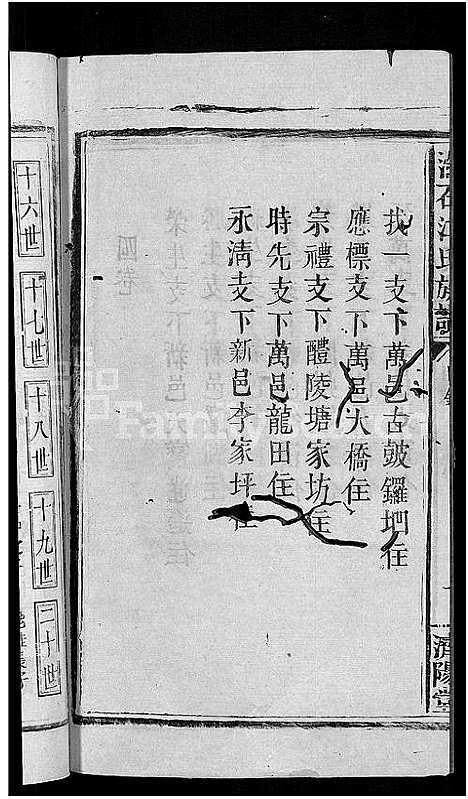 江氏族譜
濟陽堂
一支下萬邑古皷鑼坰住
應標支下萬邑大橋住
宗禮支下醴陵塘家坊住
時先支下萬邑龍田住
永清支下新邑李家坪住
十六世
十七世
十八世
十九世
二十世